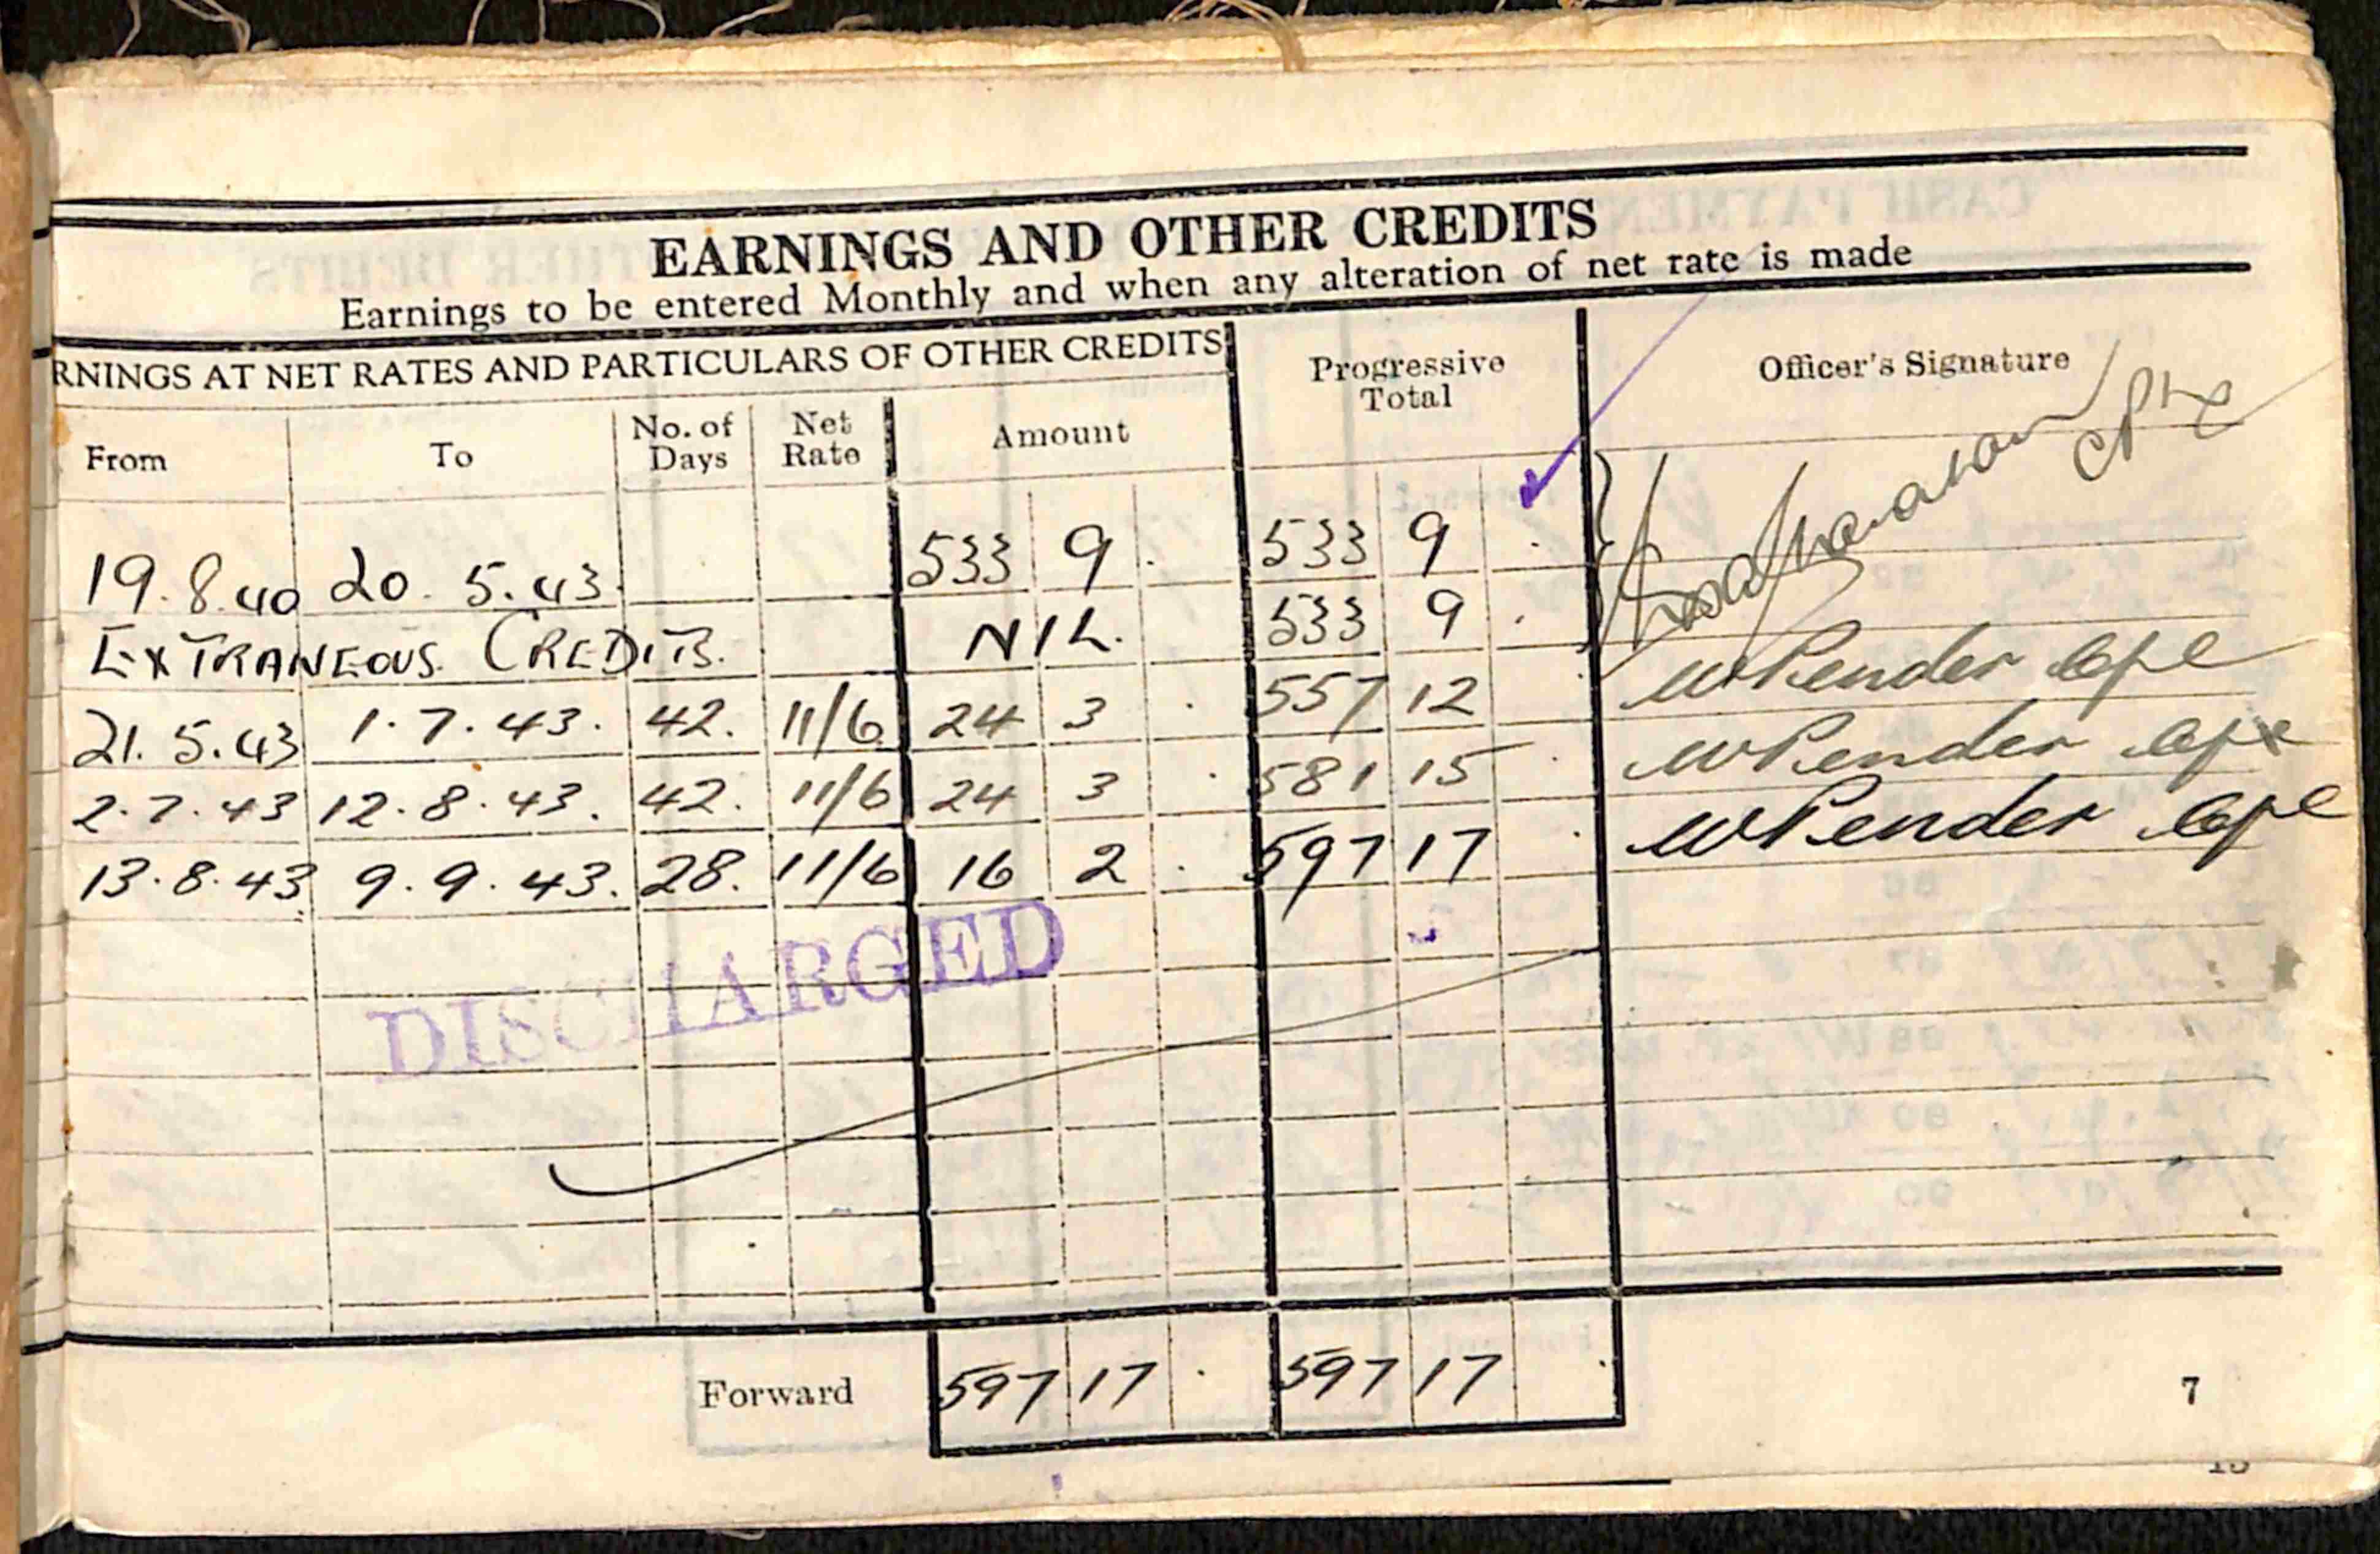 EARNINGS AND OTHER CREDITS
Earnings to be entered Monthly and when any alteration of net rate is made
RNINGS AT NET RATES AND PARTICULARS OF OTHER CREDITS Progressive Total Officer's Signature
From To No. of Days Net Rate Amount
19.8.40 20.5.43. 533 9 . 533 9 .
EXTRANEOUS CREDITS. NIL. 533 9 . Cpl
21.5.43 1.7.43. 42. 11/6 24 3 . 557 12 . W Pender Cpl
2.7.43 12.8.43. 42. 11/6 24 3 . 581 15 . W Pender Cpl
13.8.43 9.9.43. 28. 11/6 16 2 . 597 17 . W Pender Cpl
DISCHARGED
Forward 597 17 . 597 17 .
7